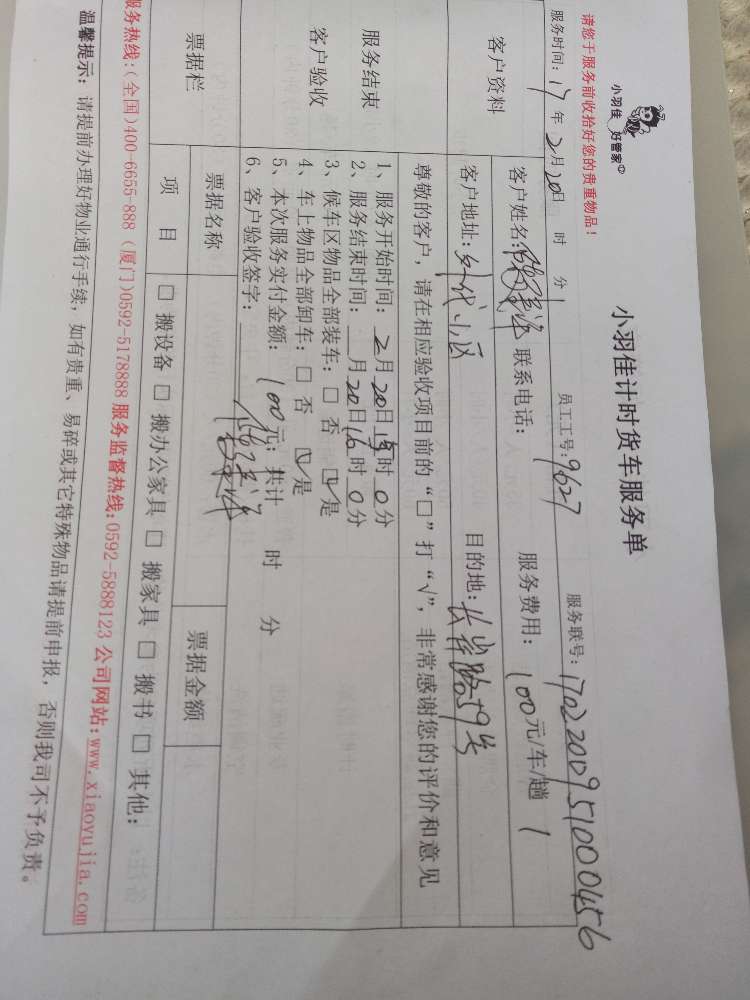 小羽佳 好管家
小羽佳计时货车服务单
请您于服务前收拾好您的贵重物品！
服务时间：17年2月20日 时 分 员工工号：9627 服务联号：1702200951000456
客户资料 客户姓名： 联系电话： 服务费用：100元/车/趟 1
客户地址：时代小区 目的地：长岸路59号
尊敬的客户，请在相应验收项目前的“□”打“√”，非常感谢您的评价和意见
服务结束
客户验收
1、服务开始时间：2月20日15时0分
2、服务结束时间： 月20日16时0分
3、候车区物品全部装车：□ 否 ☑是
4、车上物品全部卸车：□ 否 ☑是
5、本次服务实付金额：100元；共计 时 分
6、客户验收签字：
票据栏 票据名称 票据金额
项 目 □ 搬设备 □ 搬办公家具 □ 搬家具 □ 搬书 □ 其他：
服务热线：(全国)400-6655-888 (厦门)0592-5178888 服务监督热线：0592-5888123 公司网站：www.xiaoyujia.com
温馨提示：请提前办理好物业通行手续，如有贵重、易碎或其它特殊物品请提前申报，否则我司不予负责。